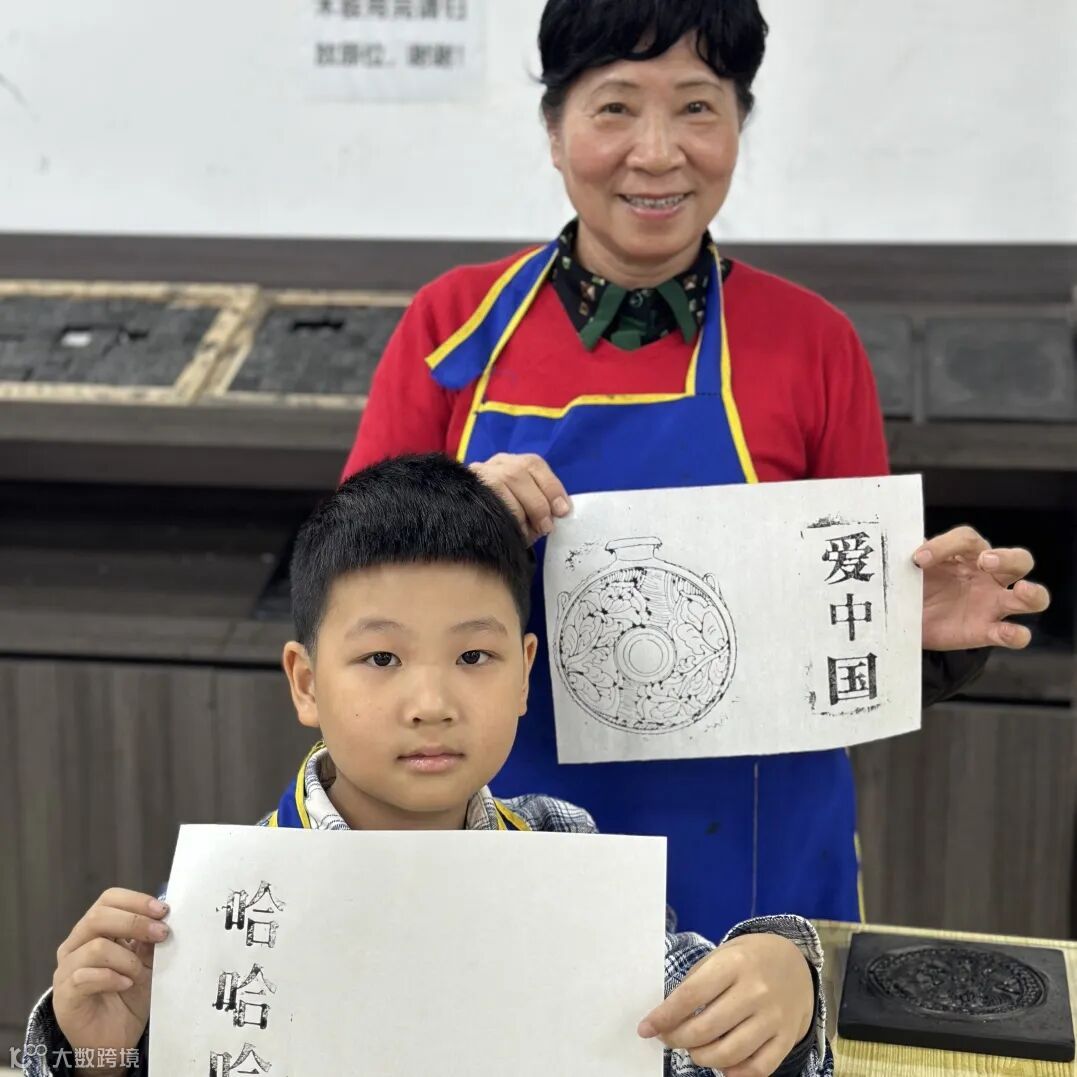 放原位，谢谢！
爱
中
国
哈
哈
哈
大数跨境